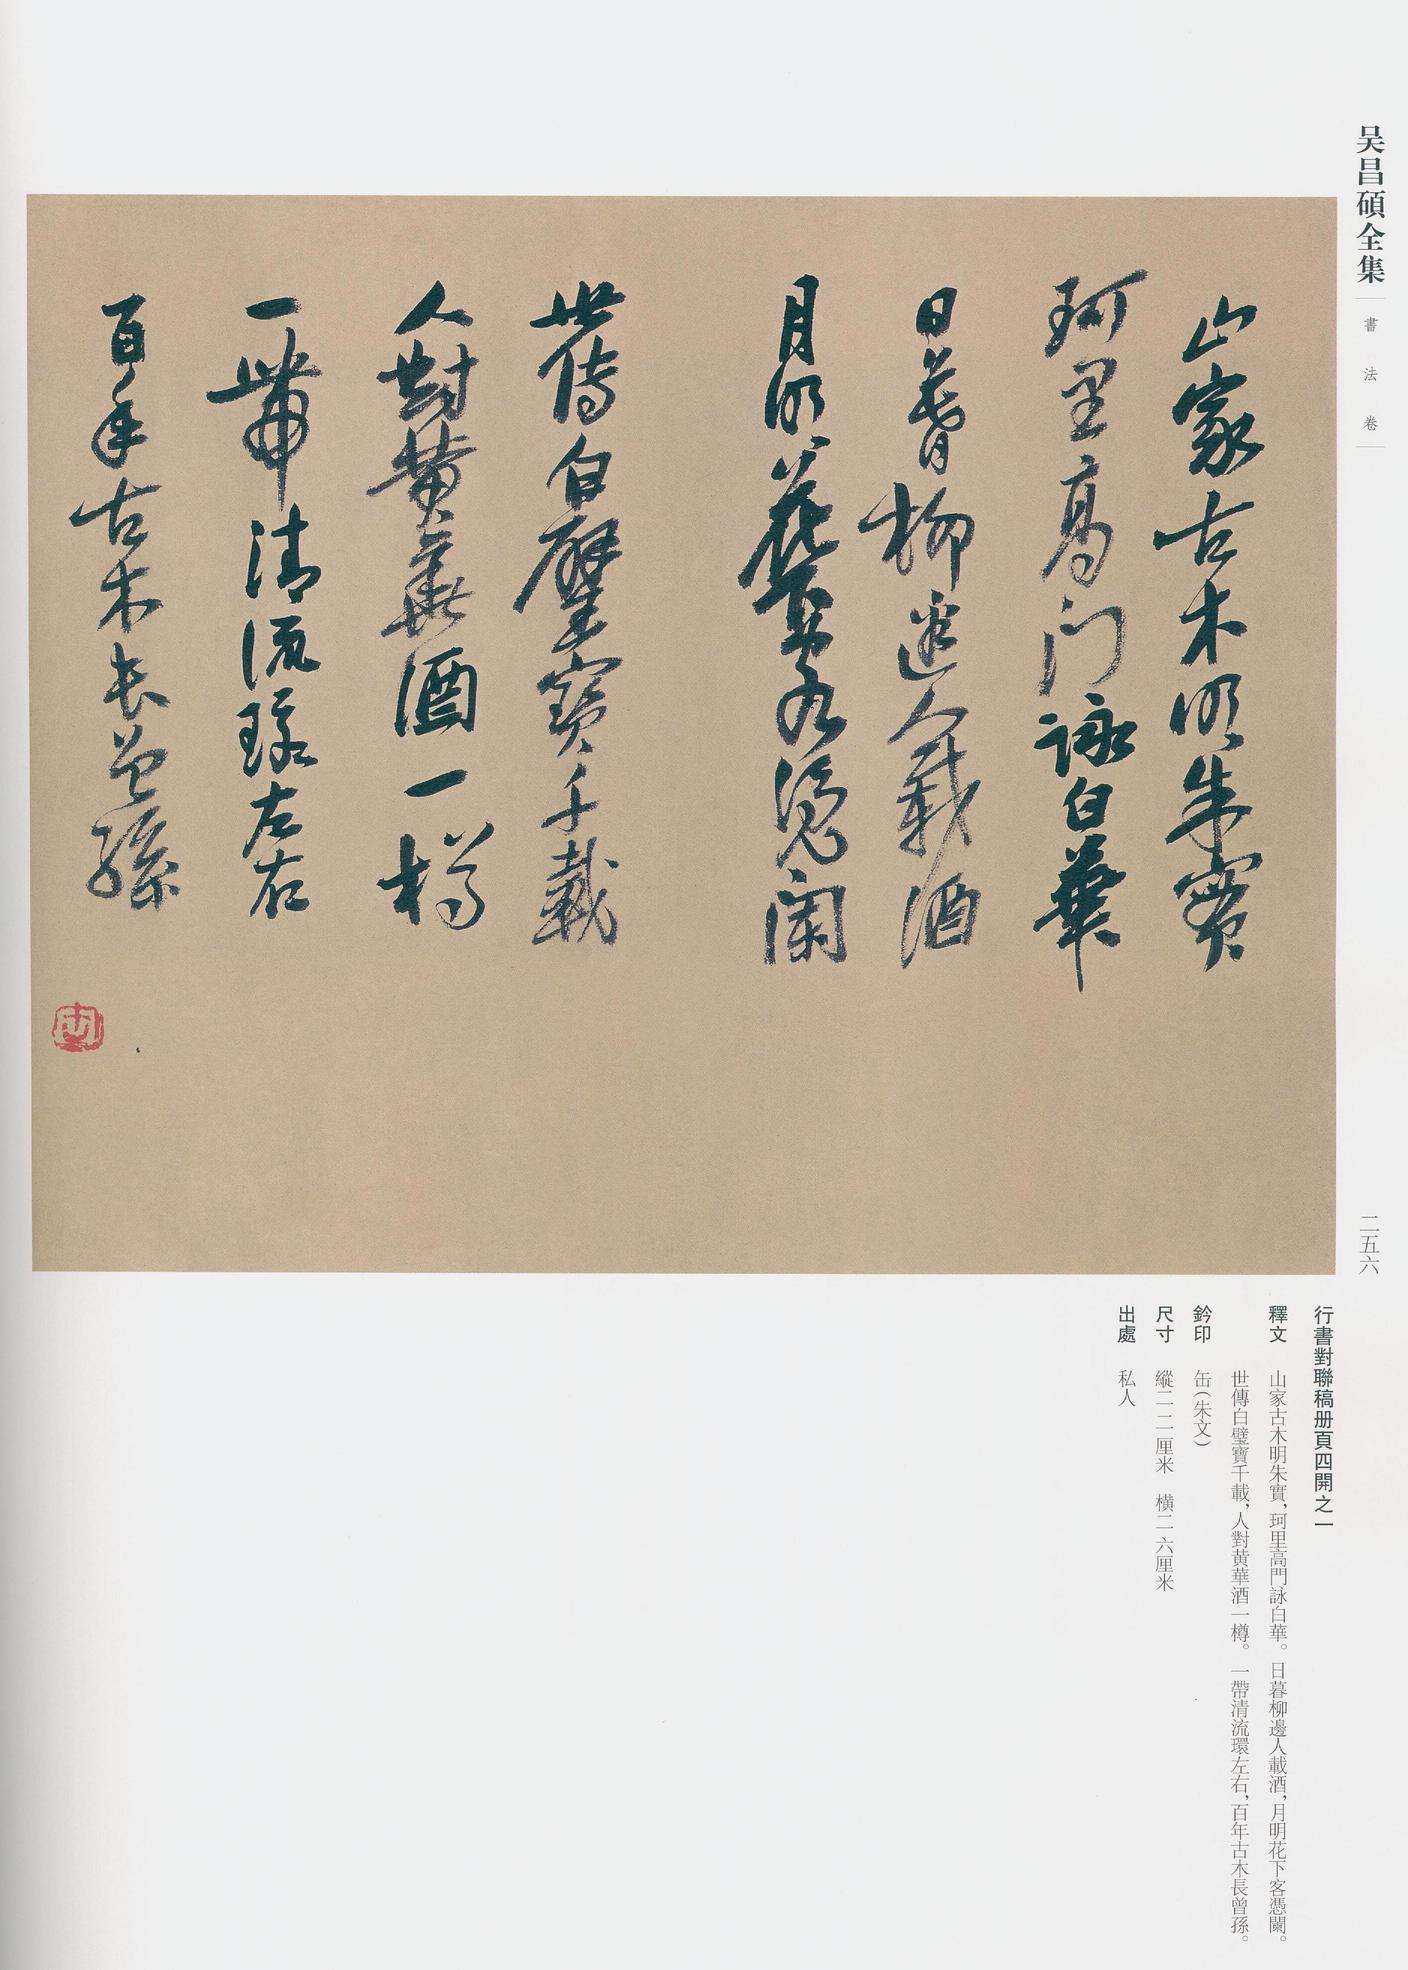 吴昌碩全集
書法卷
二五六
山家古木明朱實
珂里高门詠白華
日暮柳邊人載酒
月明花下客憑闌
世傳白璧寶千載
人對黄華酒一樽
一帶清流環左右
百年古木長曾孫
缶
行書對聯稿册頁四開之一
釋文 山家古木明朱實，珂里高門詠白華。日暮柳邊人載酒，月明花下客憑闌。
世傳白璧寶千載，人對黄華酒一樽。一帶清流環左右，百年古木長曾孫。
鈐印 缶（朱文）
尺寸 縱二二厘米 横二六厘米
出處 私人